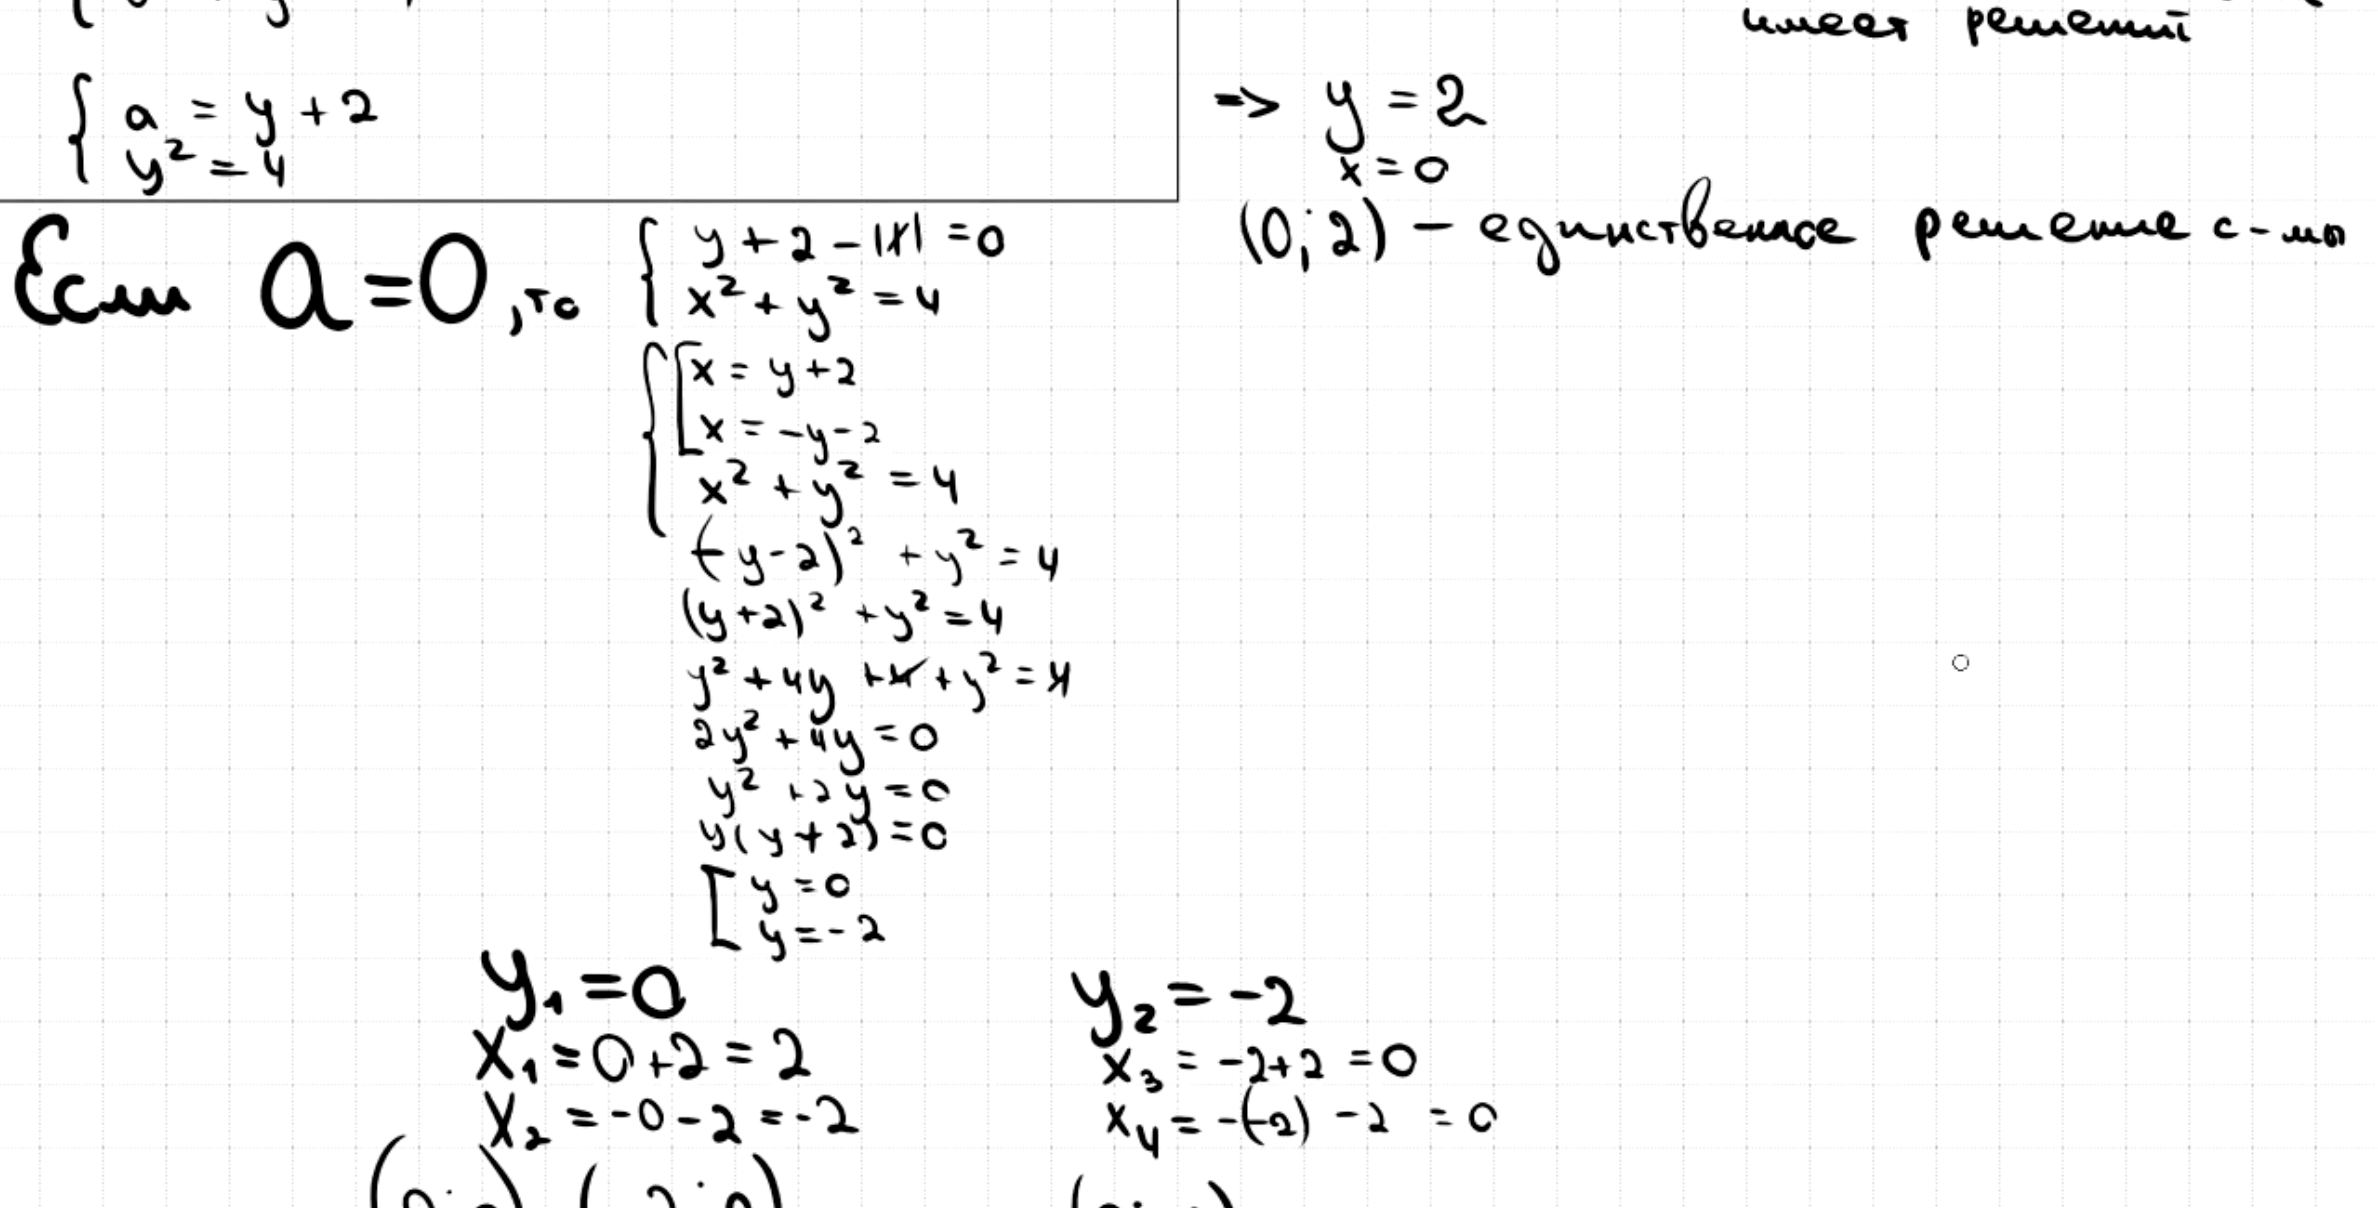 имеет решений
{ a = y + 2
y² = 4
=> y = 2
x = 0
(0; 2) - единственное решение с-мы
Если a = 0, то
{ y + 2 - |x| = 0
x² + y² = 4
{ [ x = y + 2
x = -y - 2
x² + y² = 4
(-y - 2)² + y² = 4
(y + 2)² + y² = 4
y² + 4y + 4 + y² = 4
2y² + 4y = 0
y² + 2y = 0
y(y + 2) = 0
[ y = 0
y = -2
y₁ = 0
x₁ = 0 + 2 = 2
x₂ = -0 - 2 = -2
y₂ = -2
x₃ = -2 + 2 = 0
x₄ = -(-2) - 2 = 0